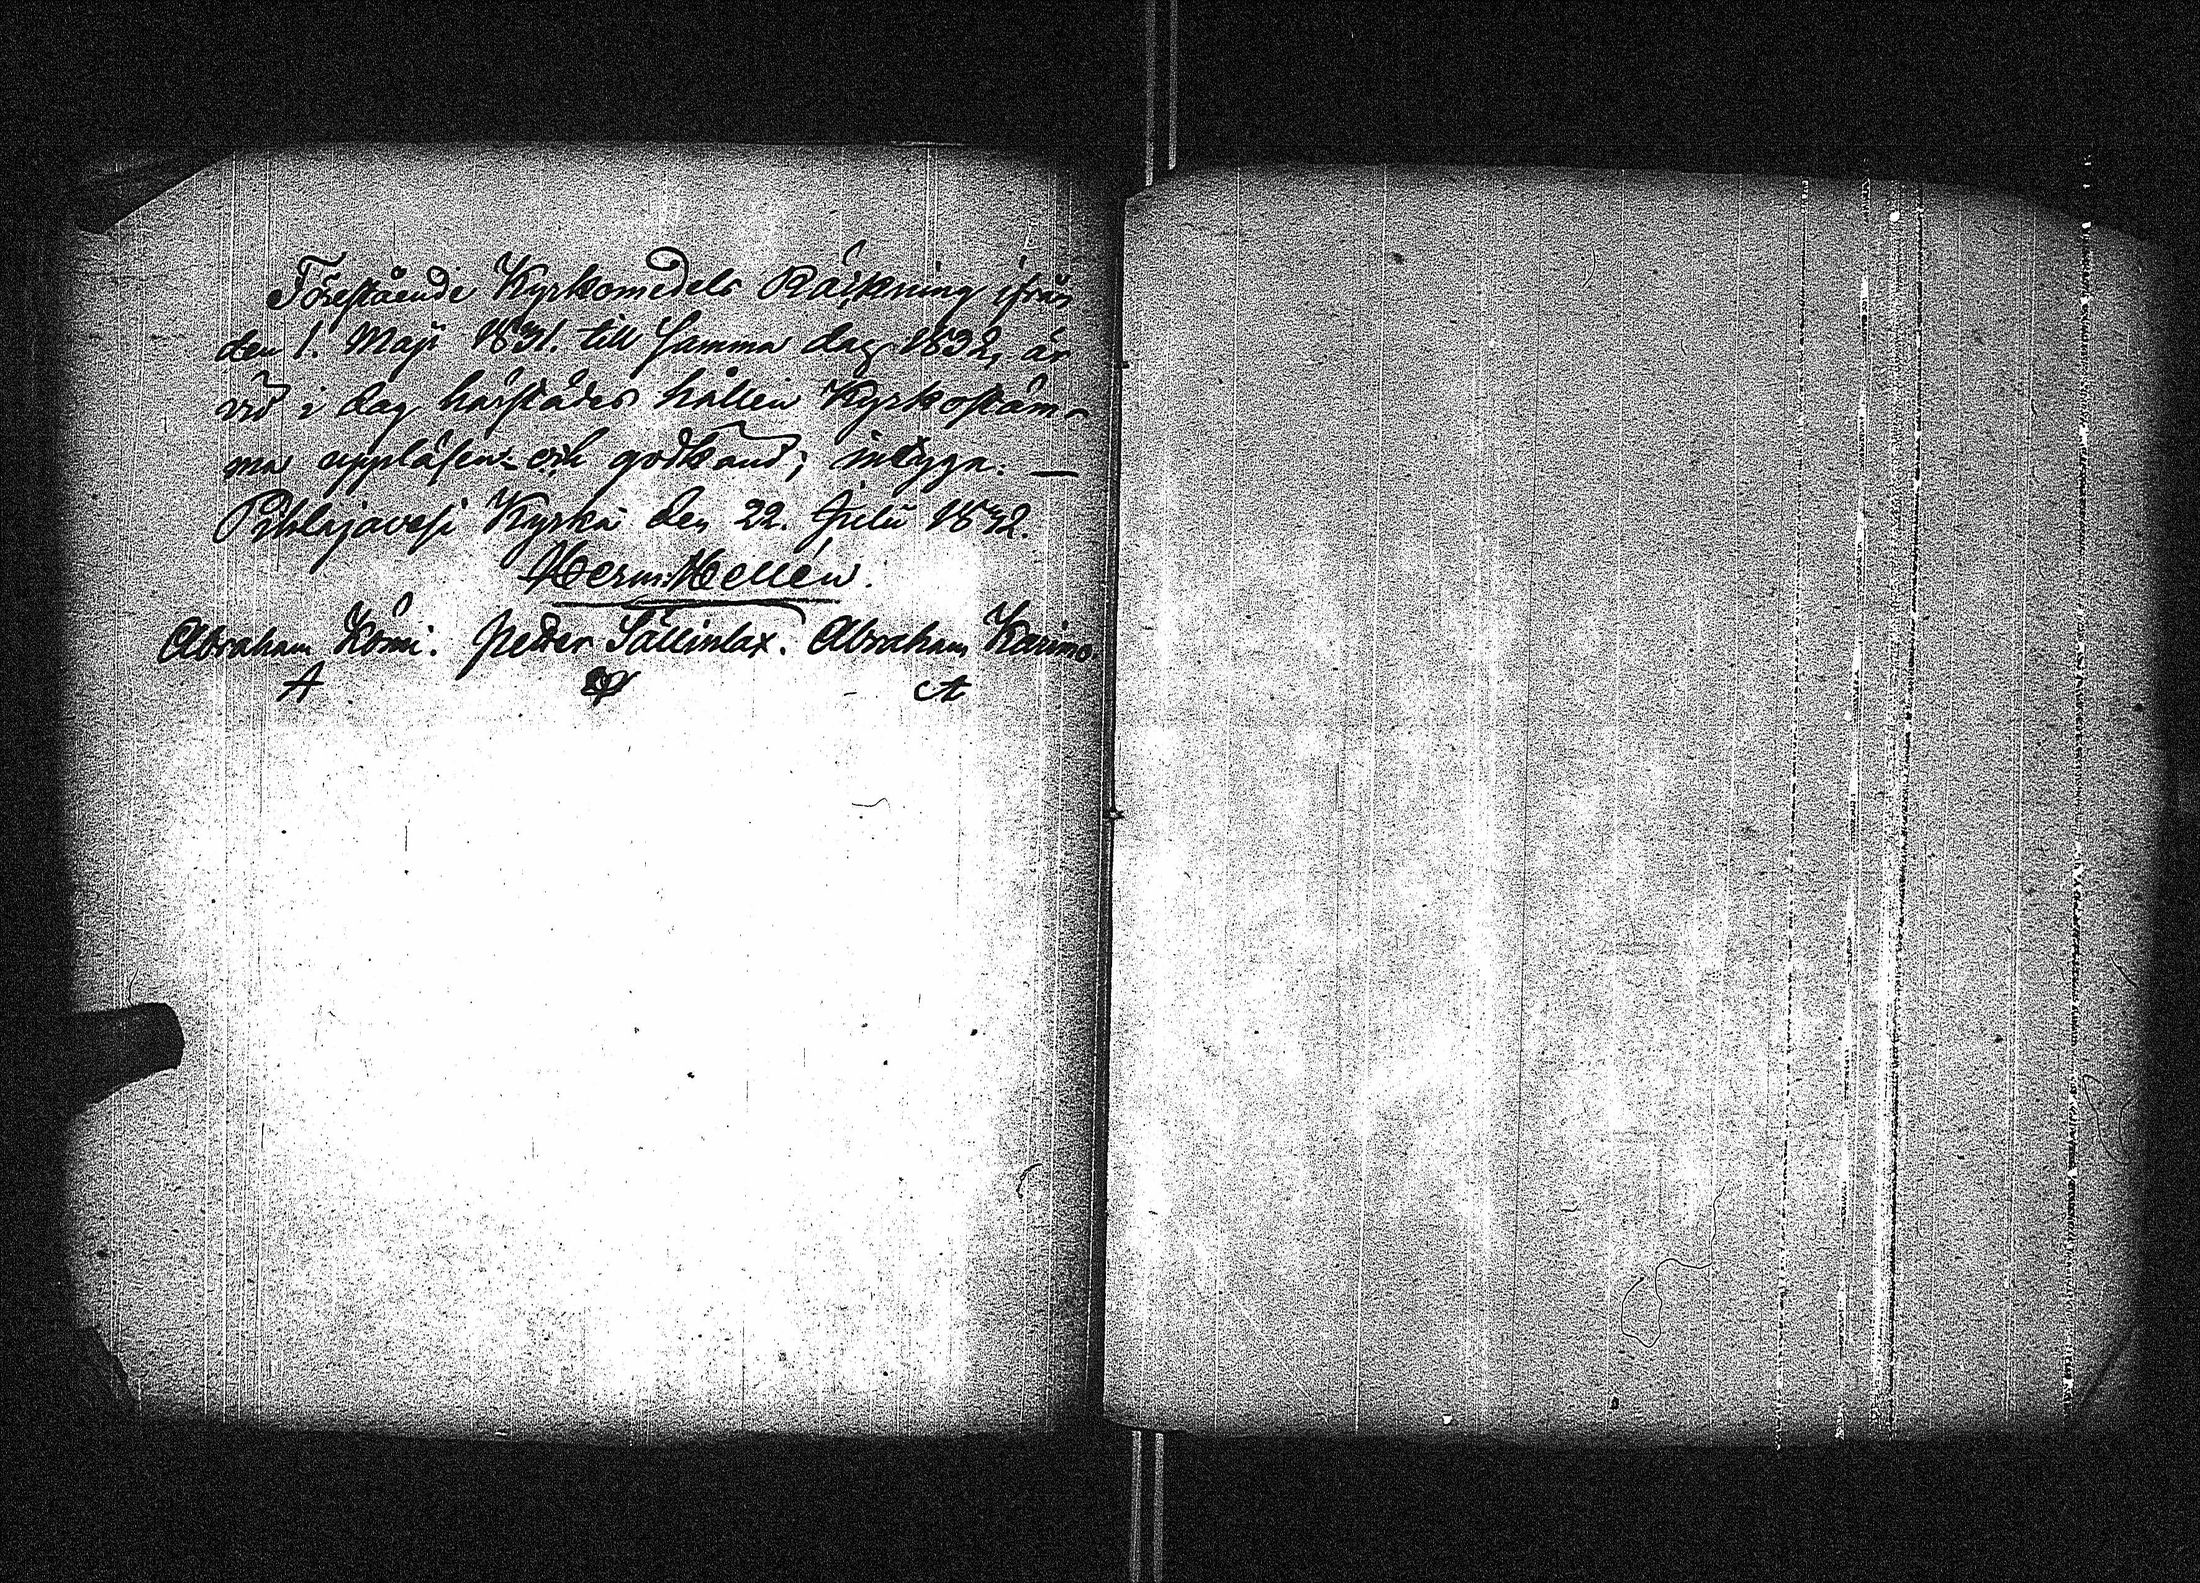 Föreståënde Kyrkomedels Räkning ifrån
den 1. Maji 1831. till samma dag 1832, är
vid i dag härstädes hållen Kyrkostäm-
ma uppläsen och godkänd; intyga. —
Pihlajavesi Kyrka den 22. Julii 1832.
Herm. Hellén.
Abraham Kömi. Petter Sällinlax. Abraham Karimo.
A A